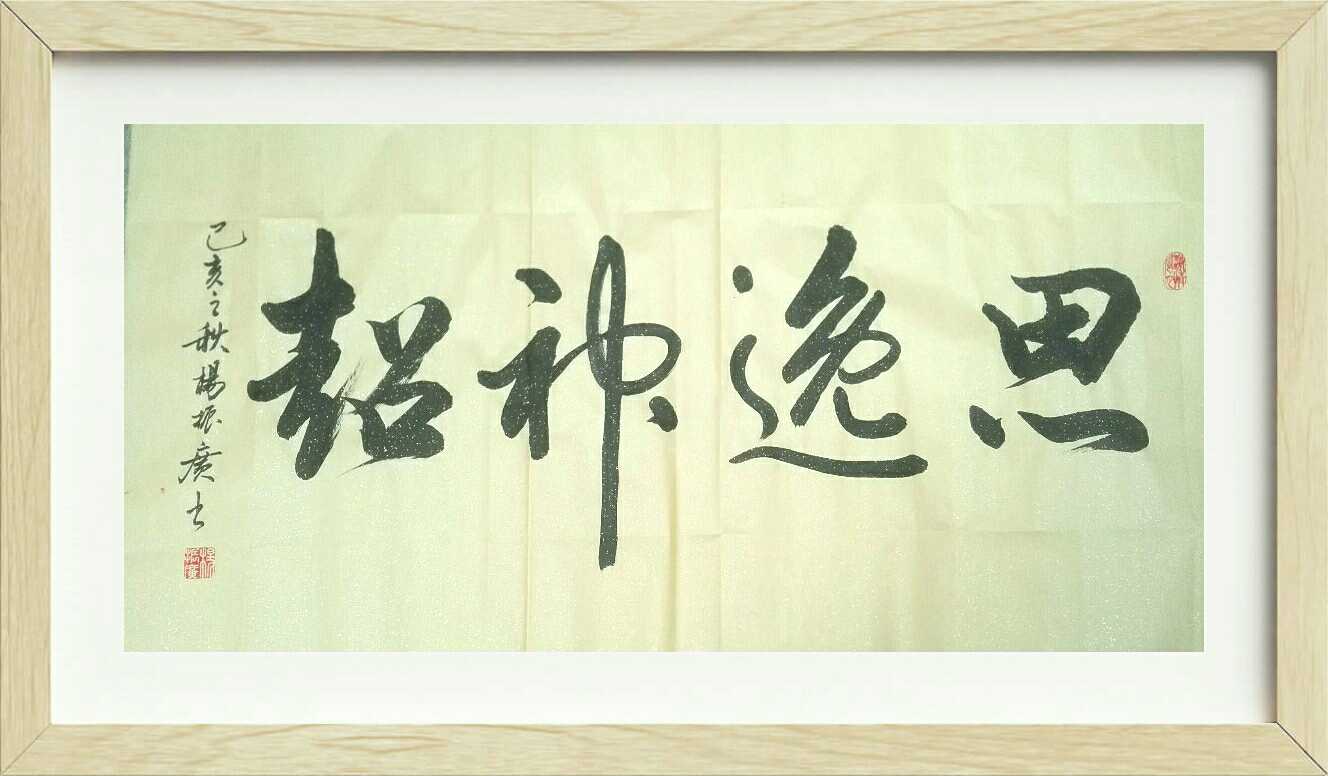 思逸神超
己亥之秋杨振廣书